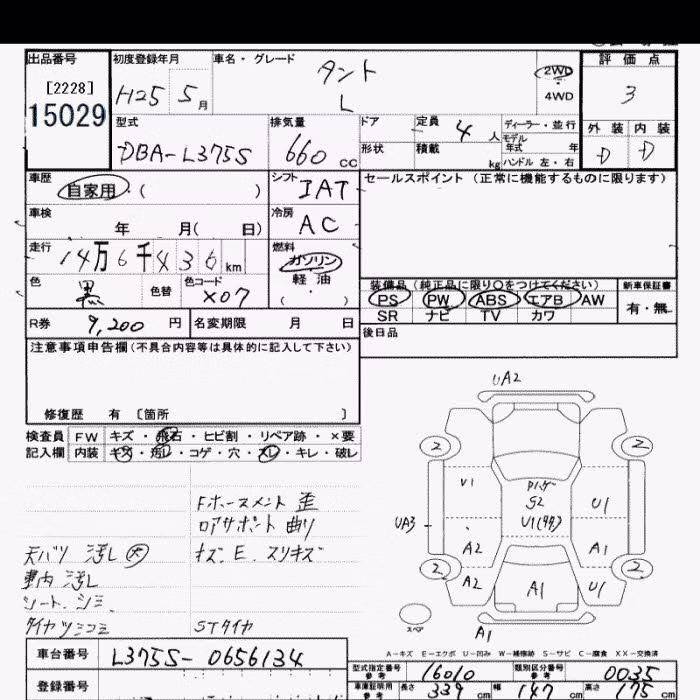 出品番号
[2228]
15029
初度登録年月
H25 5月
車名・グレード
タント
L
2WD
4WD
評価点
3
外装 内装
D D
型式
DBA-L375S
排気量
660 CC
ドア
定員 4 人
形状
積載 kg
ディーラー・並行
モデル年式 年
ハンドル 左・右
車歴
自家用・( )
シフト
IAT
セールスポイント(正常に機能するものに限ります)
車検
年 月( 日)
冷房
AC
走行
14万6千436km
燃料
ガソリン
軽油
( )
色
黒
色替
色コード
X07
装備品(純正品に限り〇をつけてください)
PS PW ABS エアB AW
SR ナビ TV カワ
新車保証書
有・無
R券
9,200 円
名変期限 月 日
後日品
注意事項申告欄(不具合内容等は具体的に記入して下さい)
修復歴 有 [箇所 ]
検査員記入欄
FW キズ・飛石・ヒビ割・リペア跡・×要
内装 キズ・汚レ・コゲ・穴・スレ・キレ・破レ
Fホースメント 歪
ロアサポート 曲リ
天バリ 汚レ 大
キズ.E.スリキズ
車内 汚レ
シート.シミ.
タイヤツミコミ
STタイヤ
UA2
2 2
V1
Pハゲ
S2
U1
UA3
A2 A1
2 2
A2 A1 U1
スペア
A1
A-キズ E-エクボ U-凹み W-補修跡 S-サビ C-腐食 XX-交換済
車台番号
L375S-0656134
登録番号
型式指定番号 参考 16010
類別区分番号 参考 0035
車庫証明用 参考 長さ 339 cm 幅 147 cm 高さ 175 cm